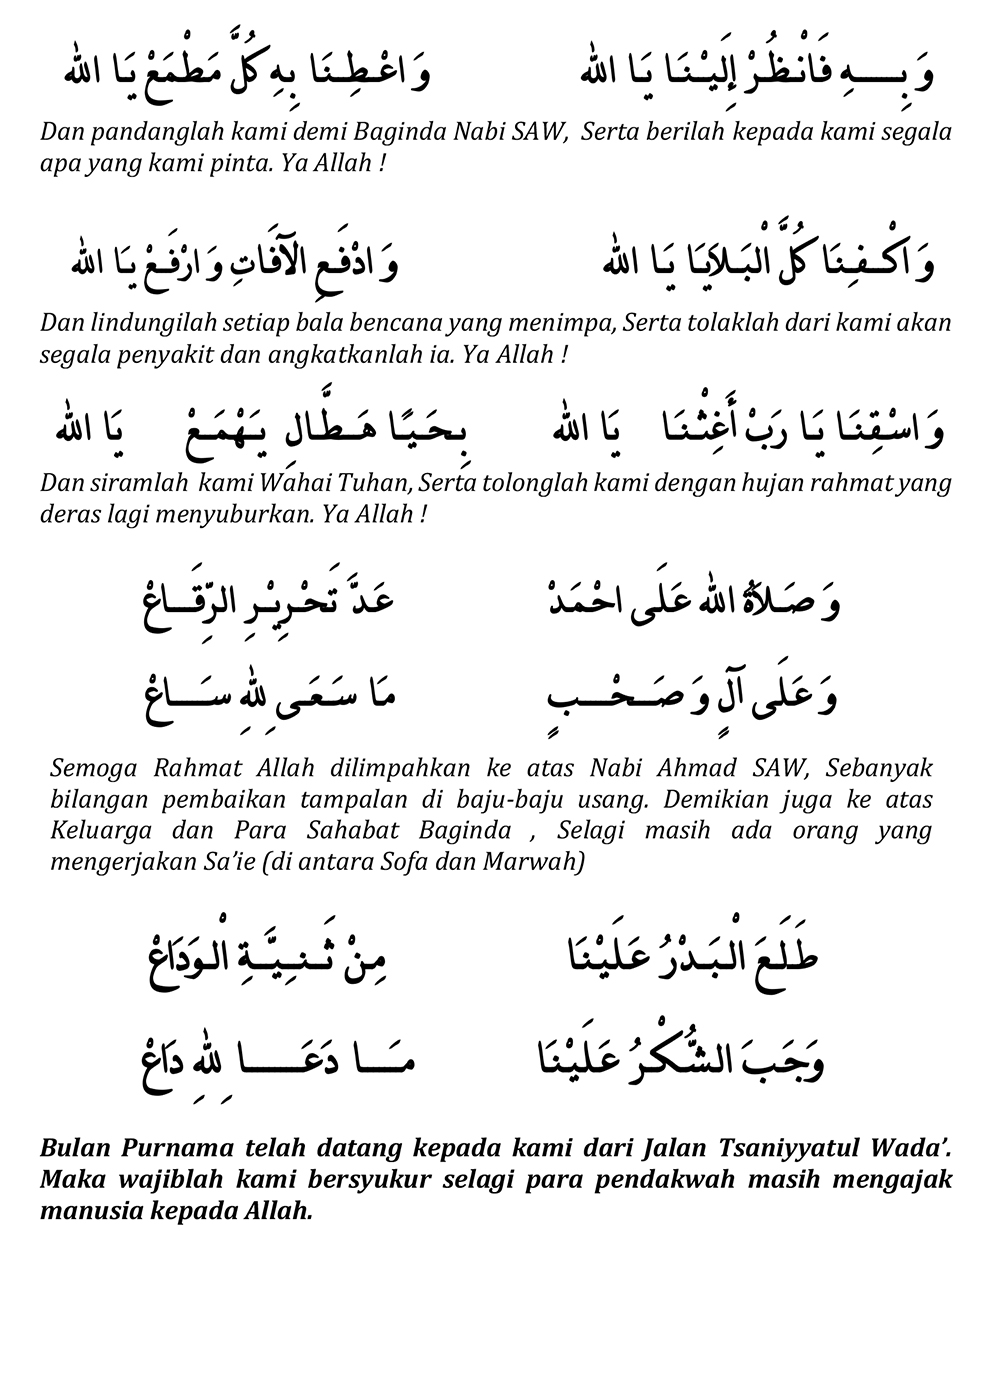 وَ بِـــهِ فَانْظُرْ إِلَيْنَا يَا الله وَ اعْطِنَا بِهِ كُلَّ مَطْمَعْ يَا الله
Dan pandanglah kami demi Baginda Nabi SAW, Serta berilah kepada kami segala
apa yang kami pinta. Ya Allah !
وَ اكْفِنَا كُلَّ الْبَلاَيَا يَا الله وَ ادْفَعِ الْآفَاتِ وَ ارْفَعْ يَا الله
Dan lindungilah setiap bala bencana yang menimpa, Serta tolaklah dari kami akan
segala penyakit dan angkatkanlah ia. Ya Allah !
وَ اسْقِنَا يَا رَبْ أَغِثْنَا يَا الله بِحَيًا هَطَّالِ يَهْمَعْ يَا الله
Dan siramlah kami Wahai Tuhan, Serta tolonglah kami dengan hujan rahmat yang
deras lagi menyuburkan. Ya Allah !
وَ صَلاَةُ الله عَلَى احْمَدْ عَدَّ تَحْرِيْرِ الرِّقَاعْ
وَ عَلَى آلٍ وَ صَحْبٍ مَا سَعَى لِلهِ سَاعْ
Semoga Rahmat Allah dilimpahkan ke atas Nabi Ahmad SAW, Sebanyak
bilangan pembaikan tampalan di baju-baju usang. Demikian juga ke atas
Keluarga dan Para Sahabat Baginda , Selagi masih ada orang yang
mengerjakan Sa’ie (di antara Sofa dan Marwah)
طَلَعَ الْبَدْرُ عَلَيْنَا مِنْ ثَنِيَّةِ الْوَدَاعْ
وَجَبَ الشُّكْرُ عَلَيْنَا مَا دَعَا لِلهِ دَاعْ
Bulan Purnama telah datang kepada kami dari Jalan Tsaniyyatul Wada’.
Maka wajiblah kami bersyukur selagi para pendakwah masih mengajak
manusia kepada Allah.